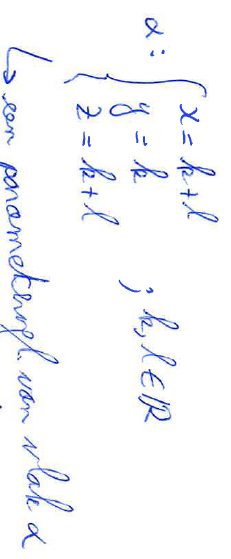 α: { x = k + l
y = k ; k, l ∈ ℝ
z = k + l
↳ een parametervgl. van vlak α